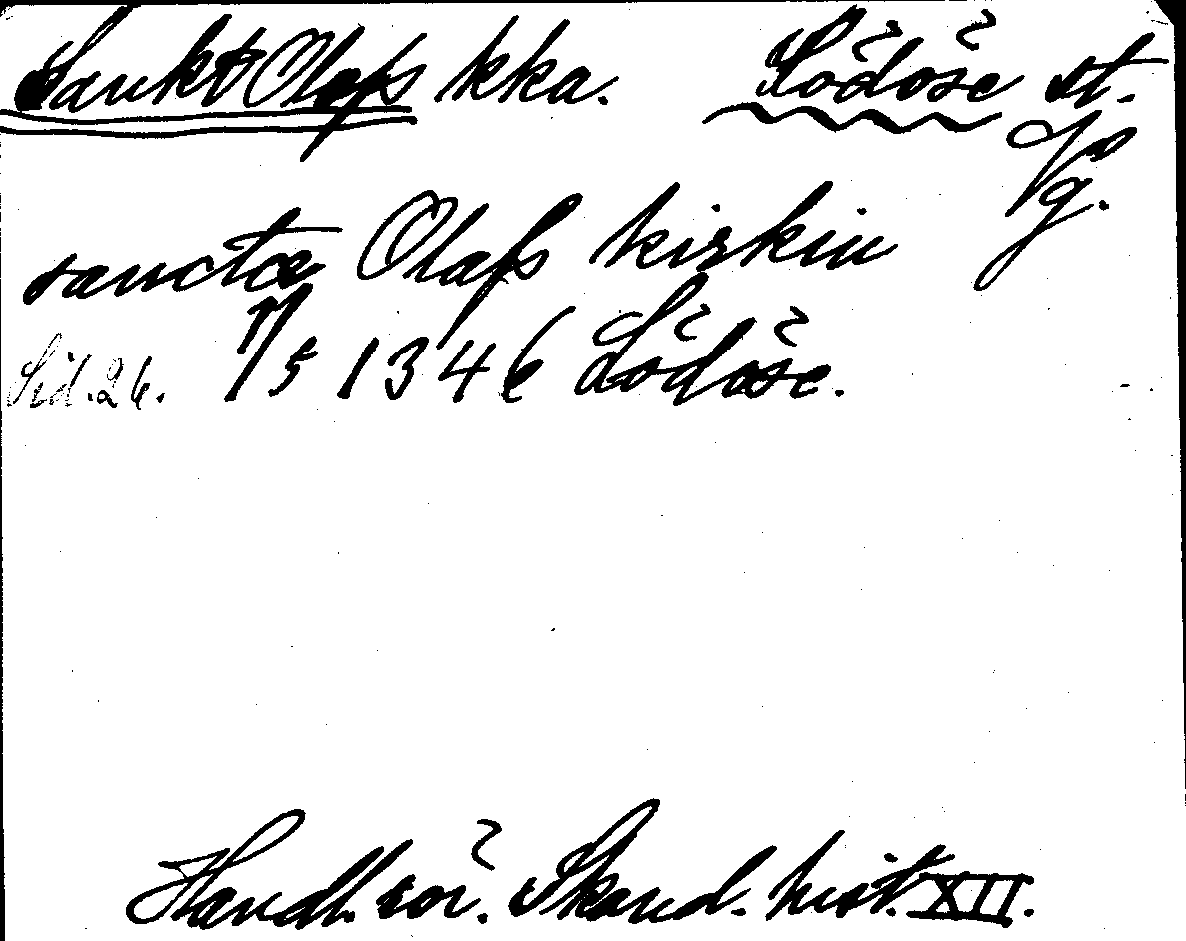 Sankt Olafs kka. Lödöse st.
Vg.
sanctæ Olafs kirkiu
Sid. 26. 17/5 1346 Lödöse.
Handl. rör. Skand. hist. XII.